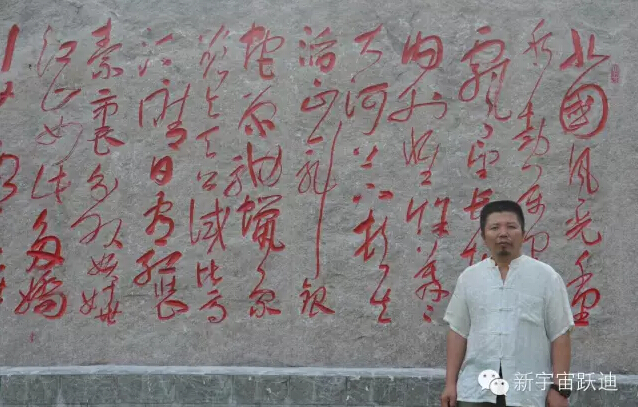 北國风光千里
冰封万里
雪飘望长城
内外惟余莽〻
大河上下顿失
滔〻山舞银
蛇原驰蜡象
欲与天公试比高
须晴日看红装
素裹分外妖娆
江山如此多娇
新宇宙跃迪